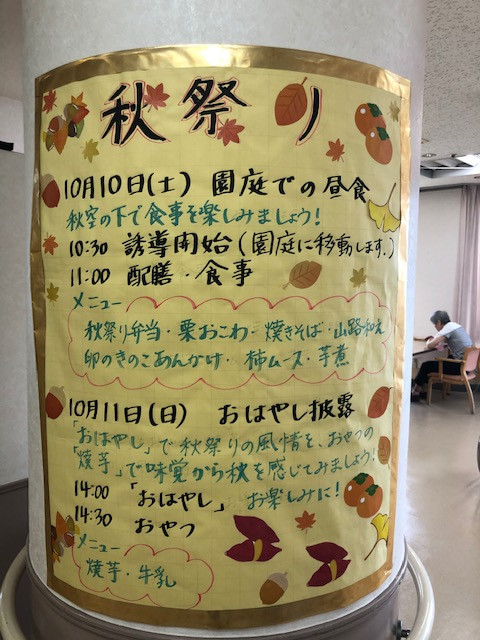 秋祭り
10月10日(土) 園庭での昼食
秋空の下で食事を楽しみましょう!
10:30 誘導開始(園庭に移動します.)
11:00 配膳・食事
メニュー
秋祭り弁当・栗おこわ・焼きそば・山路和え
卵のきのこあんかけ・柿ムース・芋煮
10月11日(日) おはやし披露
「おはやし」で秋祭りの風情を、おやつの
「焼芋」で味覚から秋を感じてみましょう!
14:00 「おはやし」お楽しみに!
14:30 おやつ
メニュー
焼芋・牛乳